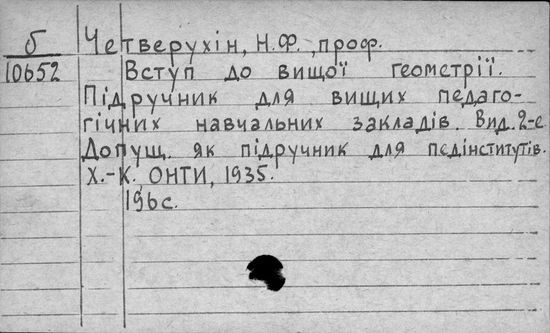 б Четверухін, Н.Ф., проф.
10652 Вступ до вищої геометрії.
Підручник для вищих педаго-
гічних навчальних закладів. Вид. 2-е
Допущ. як підручник для педінститутів.
Х.-К, ОНТИ, 1935.
196с.